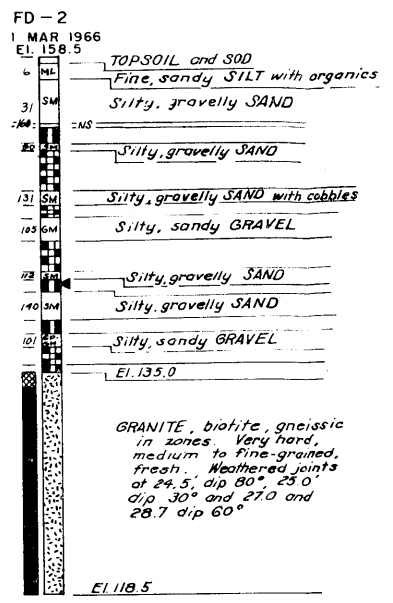 FD-2
1 MAR 1966
El. 158.5
TOPSOIL and SOD
6 ML Fine, sandy SILT with organics
31 SM Silty, gravelly SAND
NS
80 SM Silty, gravelly SAND
131 SM Silty, gravelly SAND with cobbles
105 GM Silty, sandy GRAVEL
SM Silty, gravelly SAND
140 SM Silty, gravelly SAND
101 GM Silty, sandy GRAVEL
El. 135.0
GRANITE, biotite, gneissic
in zones. Very hard,
medium to fine-grained,
fresh. Weathered joints
at 24.5', dip 80°, 25.0'
dip 30° and 27.0 and
28.7 dip 60°
El. 118.5